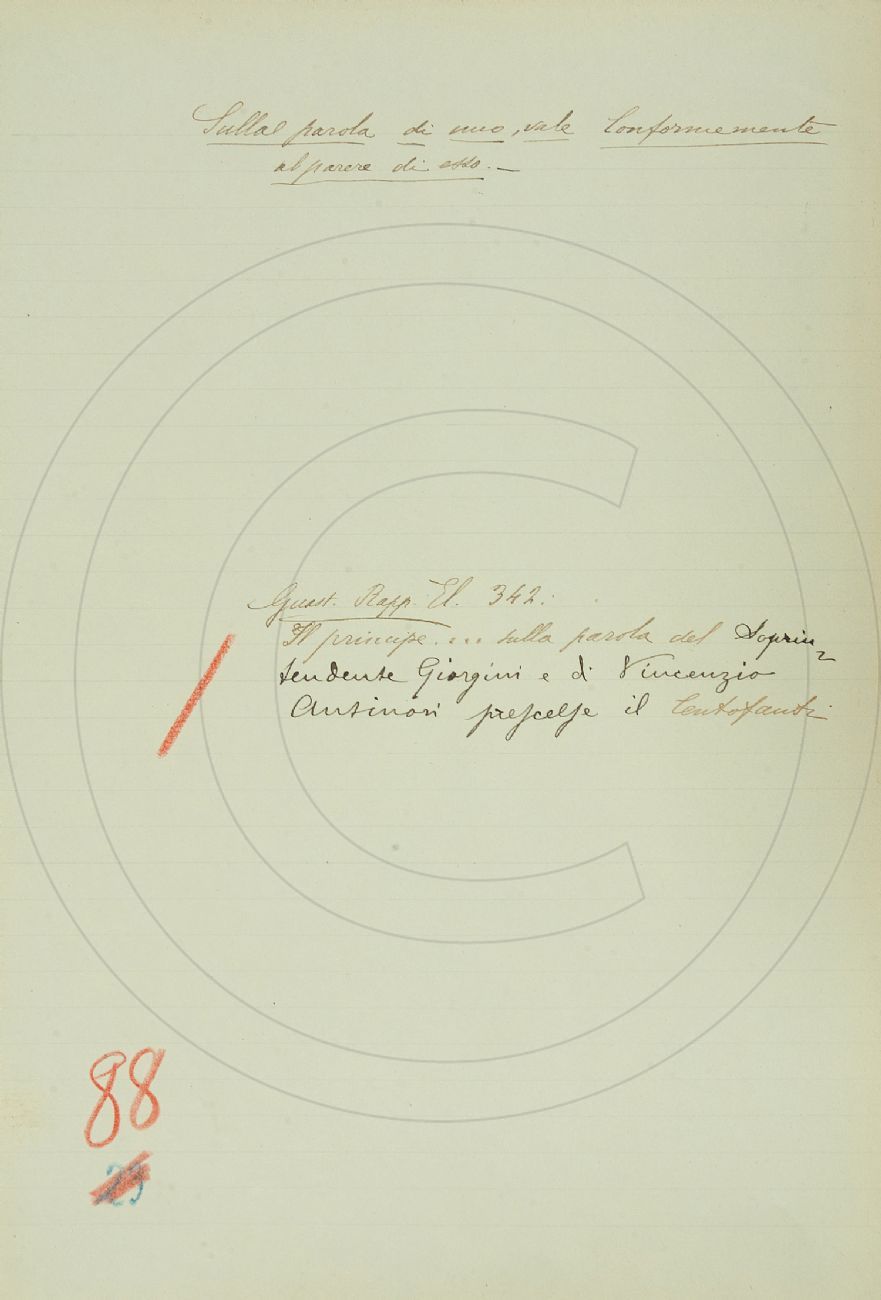 Sulla parola di uno, vale Conformemente
al parere di esso. —
Guast. Rapp. El. 342:
Il principe.... sulla parola del Soprin-
tendente Giorgini e di Vincenzio
Antinori prescelse il Centofanti
88